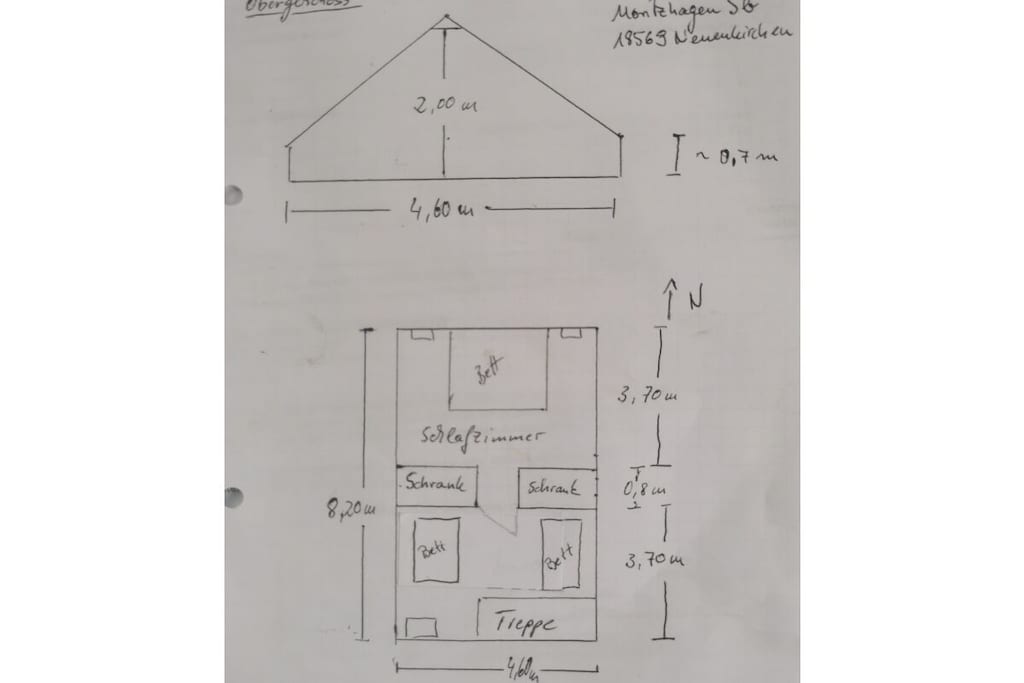 Obergeschoss
Moritzhagen 5b
18569 Neuenkirchen
2,00 m
~ 0,7 m
4,60 m
N
Bett
3,70 m
Schlafzimmer
Schrank
Schrank
0,8 m
8,20 m
Bett
Bett
3,70 m
Treppe
4,60m